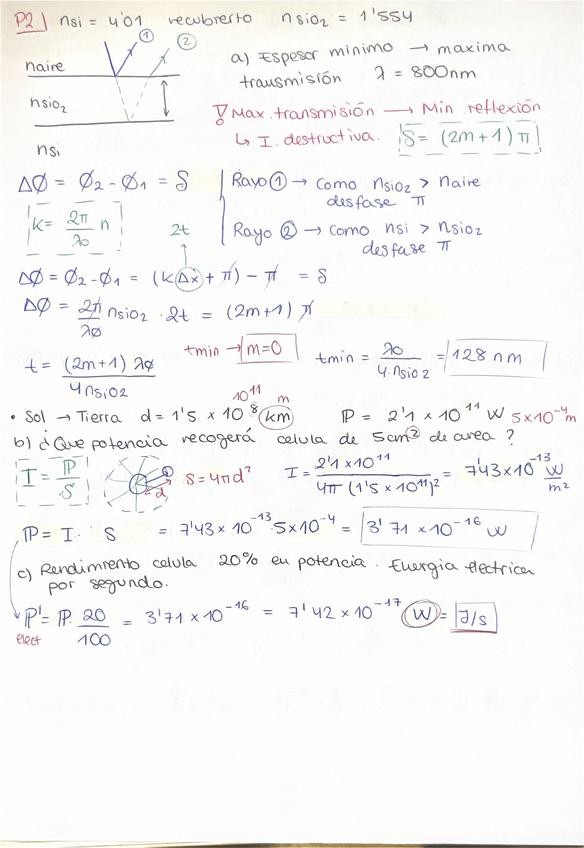 P2 | nsi = 4'01 recubrerto nsio2 = 1'554
① ②
naire
nsio2
nsi
a) Espesor minimo → maxima
transmisión λ = 800nm
! Max transmisión → Min reflexión
↳ I. destructiva. S = (2m+1) π
ΔØ = Ø2 - Ø1 = S
Rayo ① → Como nsio2 > naire
desfase π
k = 2π/λo n
2t
Rayo ② → como nsi > nsio2
desfase π
ΔØ = Ø2 - Ø1 = (kΔx + π) - π = S
ΔØ = 2π/λø nsio2 · 2t = (2m+1) π
t = (2m+1) λø / 4nsio2
tmin → m=0
tmin = λo / 4·nsio2 = 128 nm
10^11 m
• Sol → Tierra d = 1'5 x 10^8 km P = 2'1 x 10^11 W 5x10^-4 m
b) ¿Que potencia recogerá celula de 5cm² de area?
I = P/S
d
S = 4πd²
I = 2'1x10^11 / 4π (1'5 x 10^11)² = 7'43x10^-13 W/m²
P = I · S = 7'43x10^-13 · 5x10^-4 = 3'71 x10^-16 W
c) Rendimiento celula 20% en potencia. Energia electrica
por segundo.
P' = P · 20/100 = 3'71x10^-16 = 7'42x10^-17 W = J/s
elect